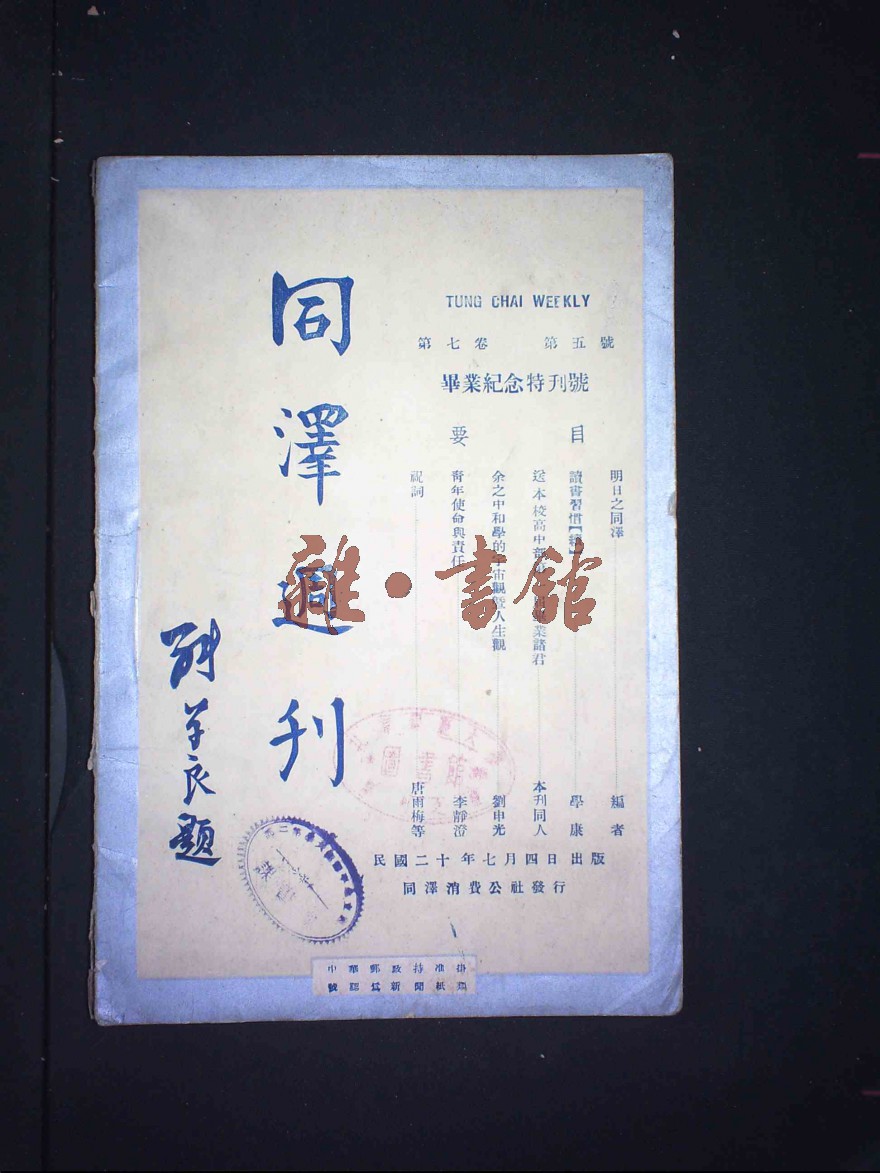 TUNG CHAI WEEKLY
第七卷 第五號
畢業紀念特刊號
目要
明日之同澤 編者
讀書習慣 學康
送本校高中部業諸君 本刊同人
余之中和學的宇宙觀暨人生觀 劉申光
靑年使命與責任 李靜澄
祝詞 唐雨梅等
民國二十年七月四日出版
同澤消費公社發行
同澤週刊
學良題
雜·書館
圖書館
中華郵政特准掛
號認爲新聞紙類